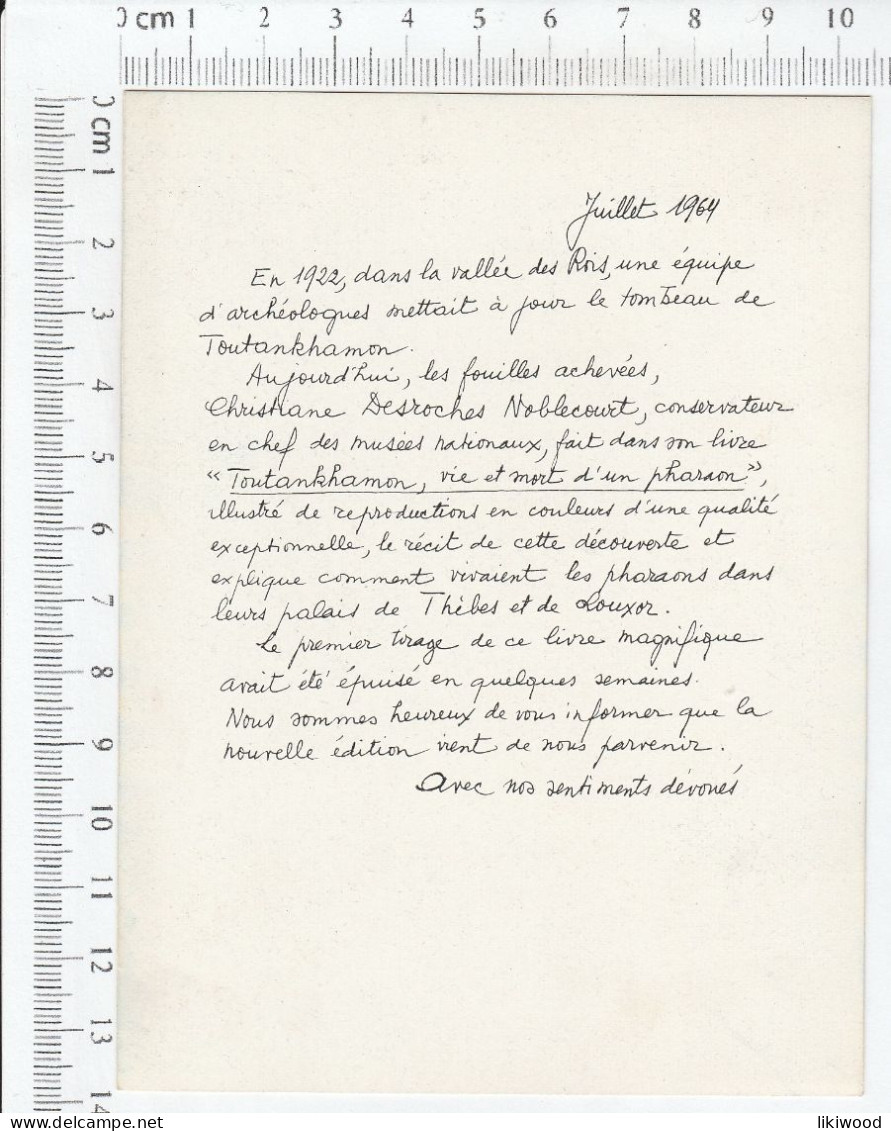 0 cm 1 2 3 4 5 6 7 8 9 10
0 cm 1 2 3 4 5 6 7 8 9 10 11 12 13 14
Juillet 1964
En 1922, dans la vallée des Rois, une équipe
d'archéologues mettait à jour le tombeau de
Toutankhamon.
Aujourd'hui, les fouilles achevées,
Christiane Desroches Noblecourt, conservateur
en chef des musées nationaux, fait dans son livre
"Toutankhamon, vie et mort d'un pharaon",
illustré de reproductions en couleurs d'une qualité
exceptionnelle, le récit de cette découverte et
explique comment vivaient les pharaons dans
leurs palais de Thèbes et de Louxor.
Le premier tirage de ce livre magnifique
avait été épuisé en quelques semaines.
Nous sommes heureux de vous informer que la
nouvelle édition vient de nous parvenir.
Avec nos sentiments dévoués
likiwood